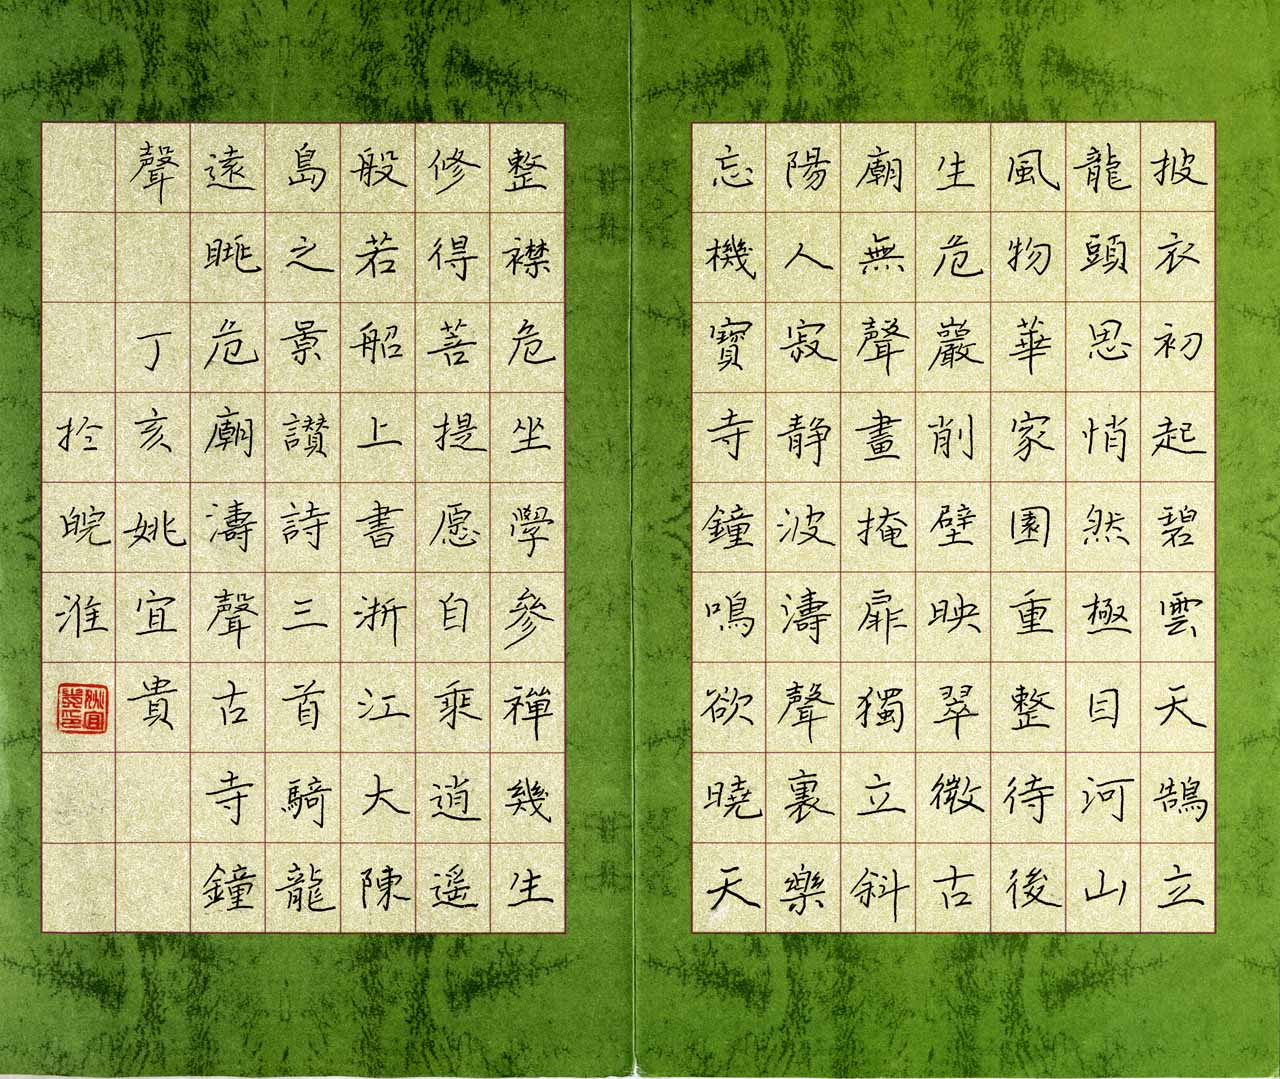 披衣初起碧雲天鵠立
龍頭思悄然極目河山
風物華家園重整待後
生危巖削壁映翠微古
廟無聲晝掩扉獨立斜
陽人寂静波濤聲裏樂
忘機寶寺鐘鳴欲曉天
整襟危坐學參禪幾生
修得菩提愿自乘逍遥
般若船上書浙江大陳
島之景讃詩三首騎龍
遠眺危廟濤聲古寺鐘
聲 丁亥姚宜貴
於皖淮